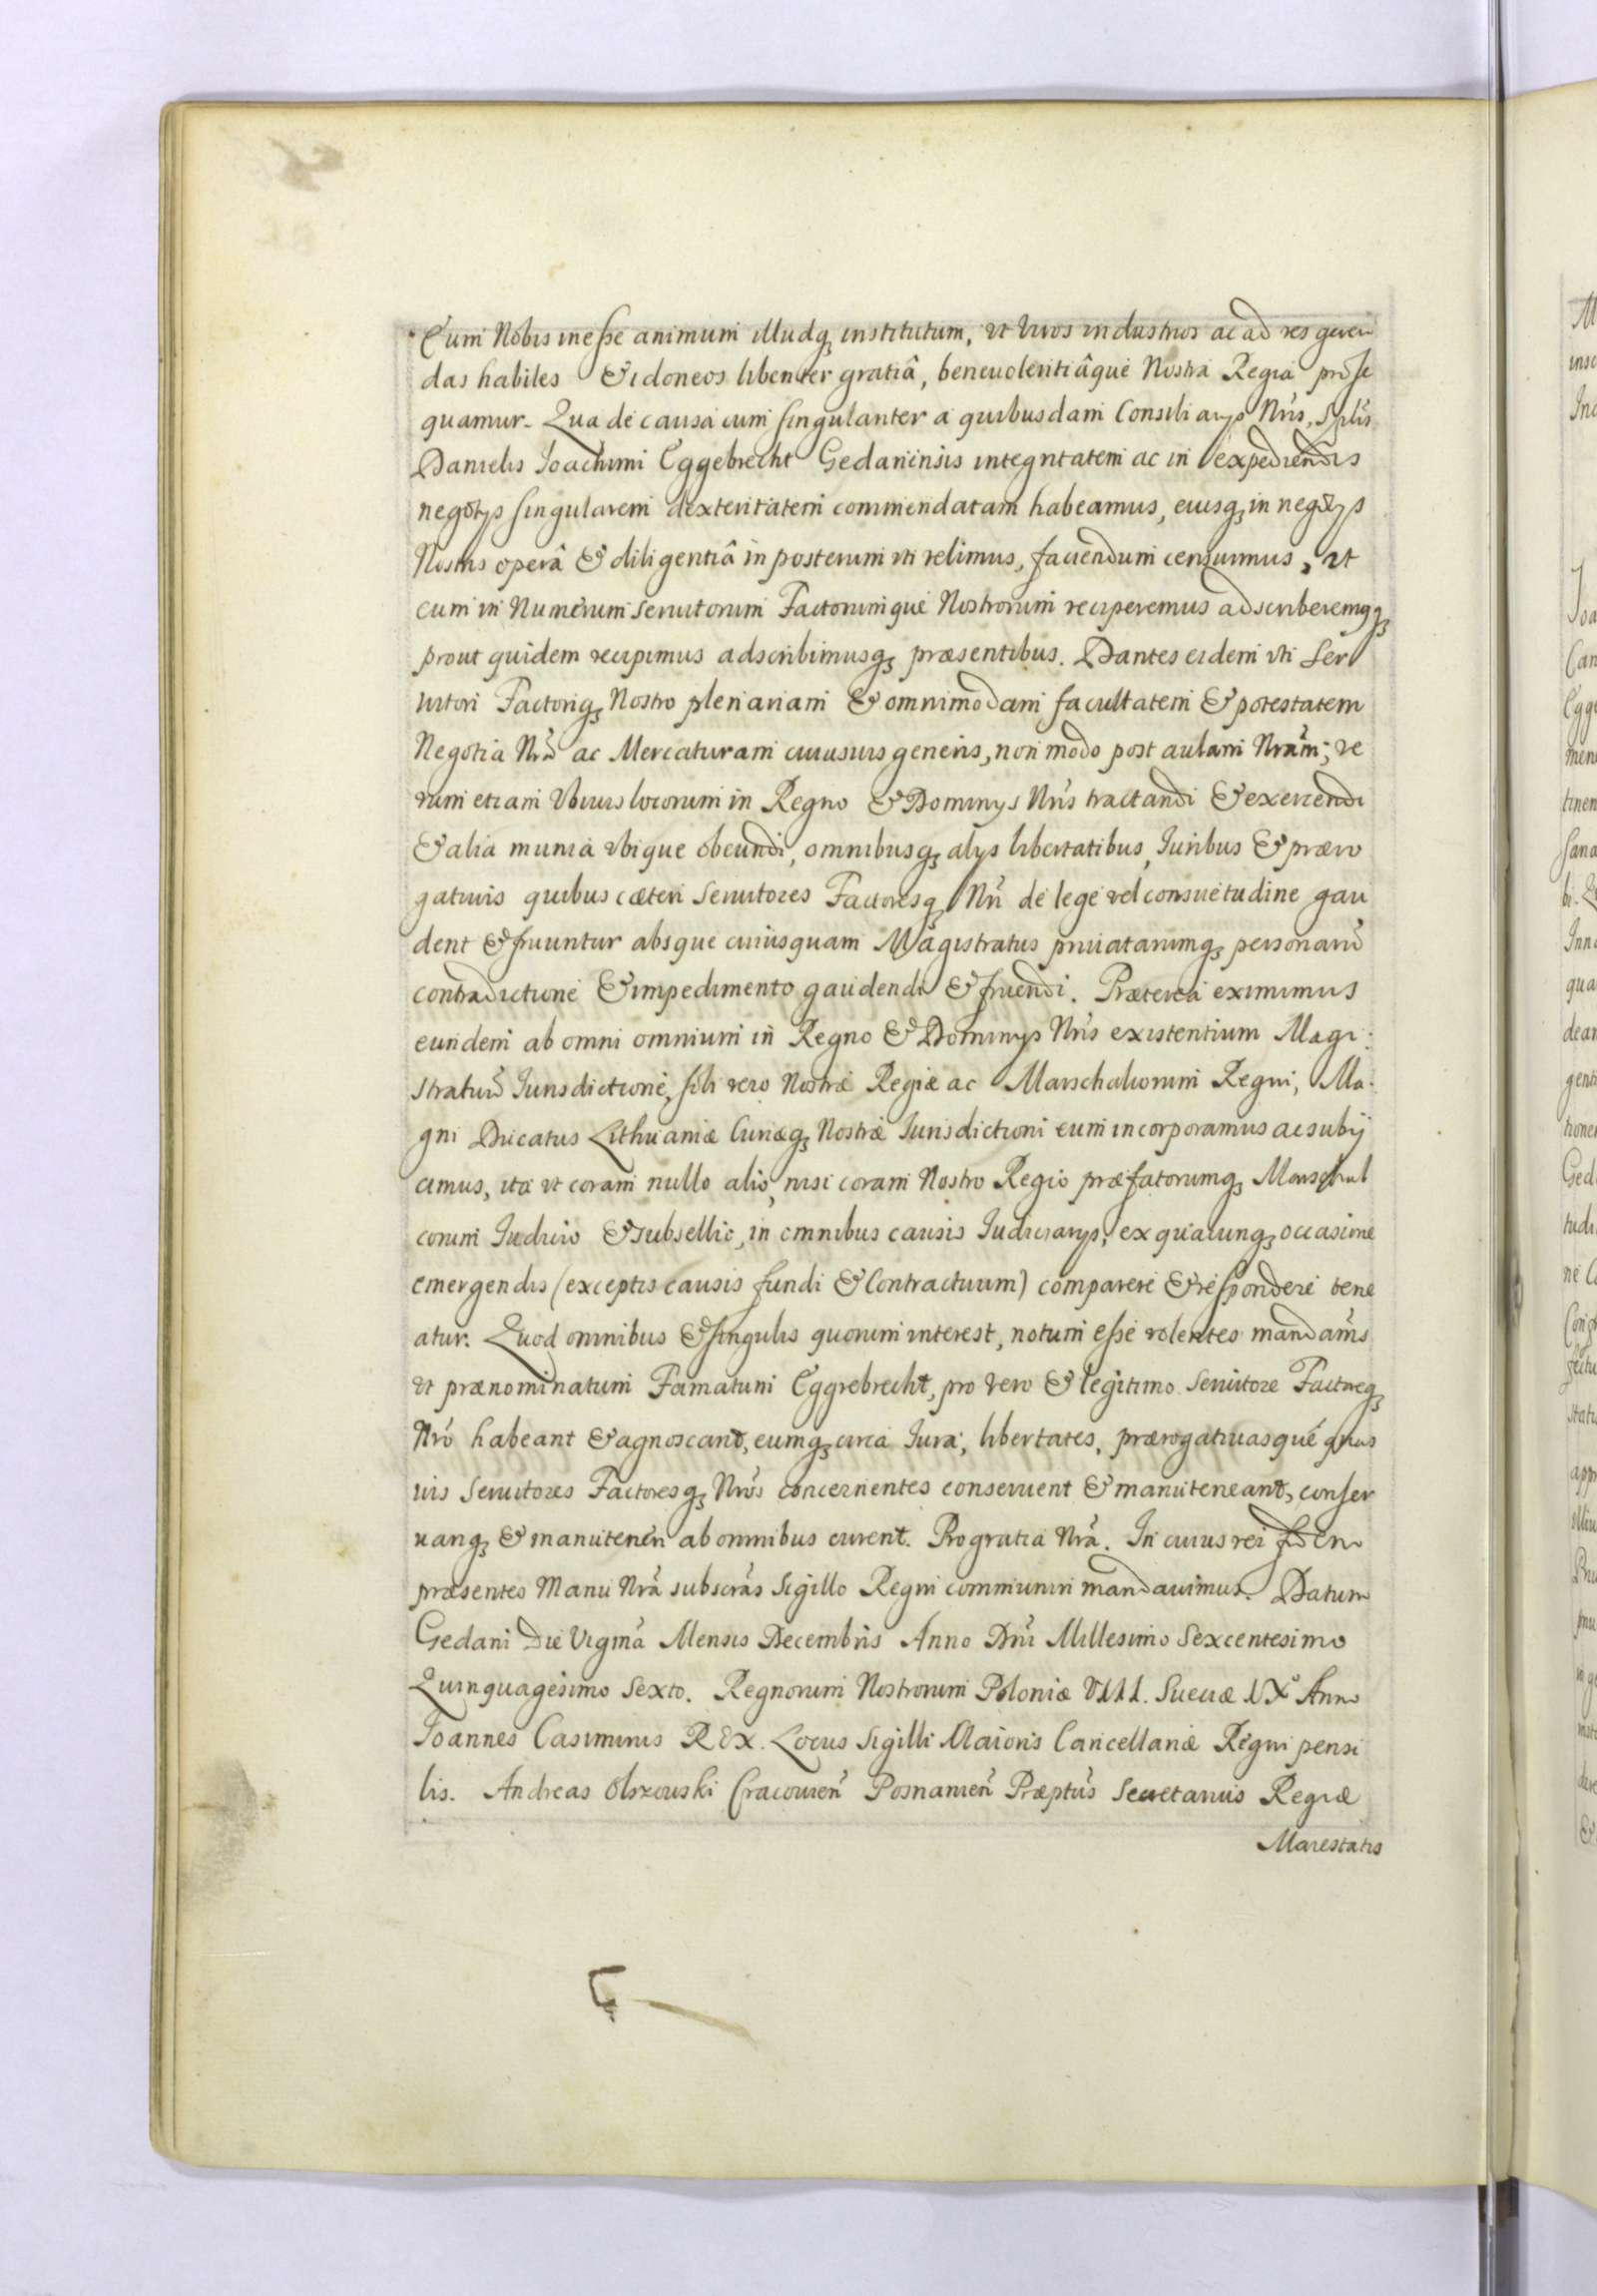 Cum Nobis inesse animum illudq₃ institutum, vt viros industrios ac ad res geren
das habiles & idoneos libenter gratiâ, beneuolentiâque Nostra Regia prose
quamur. Qua de causa cum singulariter a quibusdam Consiliarys Nr̃is, Splis
Danielis Joachimi Eggebrecht Gedanensis integritatem ac in expediendis
negotys singularem dexteritatem commendatam habeamus, eiusq₃ in negotys
Nostris operâ & diligentiâ in posterum vti velimus, faciendum censuimus, vt
eum in Numerum seruitorum Factorumque Nostrorum reciperemus adscriberemusq₃
prout quidem recipimus adscribimusq₃ præsentibus. Dantes eidem vti Ser
uitori Factoriq₃ Nostro plenariam & omnimodam facultatem & potestatem
Negotia Nr̃a ac Mercaturam cuiusuis generis, non modo post aulam Nr̃am; ve
rum etiam vbiuis locorum in Regno & Dominys Nr̃is tractandi & exercendi
& alia munia vbique obeundi, omnibusq₃ alys libertatibus, Juribus & præro
gatiuis quibus cæteri Seruitores Factoresq₃ Nr̃i de lege vel consuetudine gau
dent & fruuntur absque cuiusquam Magistratus priuatarumq₃ personarũ
contradictione & impedimento gaudendi & fruendi. Præterea eximimus
eundem ab omni omnium in Regno & Dominys Nr̃is existentium Magi:
stratuũ Jurisdictione, soli vero Nostræ Regiæ ac Marschalcorum Regni, Ma:
gni Ducatus Lithuaniæ Curiæq₃ Nostræ Jurisdictioni eum incorporamus ac subij
cimus, ita vt coram nullo alio, nisi coram Nostro Regio præfatorumq₃ Marschal
corum Judicio & subsellio, in omnibus causis Judiciarys, ex quacunq₃ occasione
emergendis (exceptis causis fundi & Contractuum) comparere & respondere tene
atur. Quod omnibus & singulis quorum interest, notum esse volentes mandam̃s
vt prænominatum Famatum Eggrebrecht, pro vero & legitimo Seruitore Factoreq₃
Nr̃o habeant & agnoscant, eumq₃ circa Jura, libertates, prærogatiuasque quas
uis Seruitores Factoresq₃ Nr̃os concernentes conseruent & manuteneant, conser
uariq₃ & manuteneri ab omnibus curent. Pro gratia Nr̃a. In cuius rei fidem
præsentes Manu Nr̃a subscr̃as Sigillo Regni communiri mandauimus. Datum
Gedani Die Vigm̃a Mensis Decembris Anno Dñi Millesimo Sexcentesimo
Quinquagesimo Sexto. Regnorum Nostrorum Poloniæ VIII. Sueciæ IX° Anno
Joannes Casimirus REX. Locus Sigilli Maioris Cancellariæ Regni pensi
lis. Andreas Olszouski Cracouien̄ Posnanien̄ Præptũs Secretarius Regiæ
Maiestatis